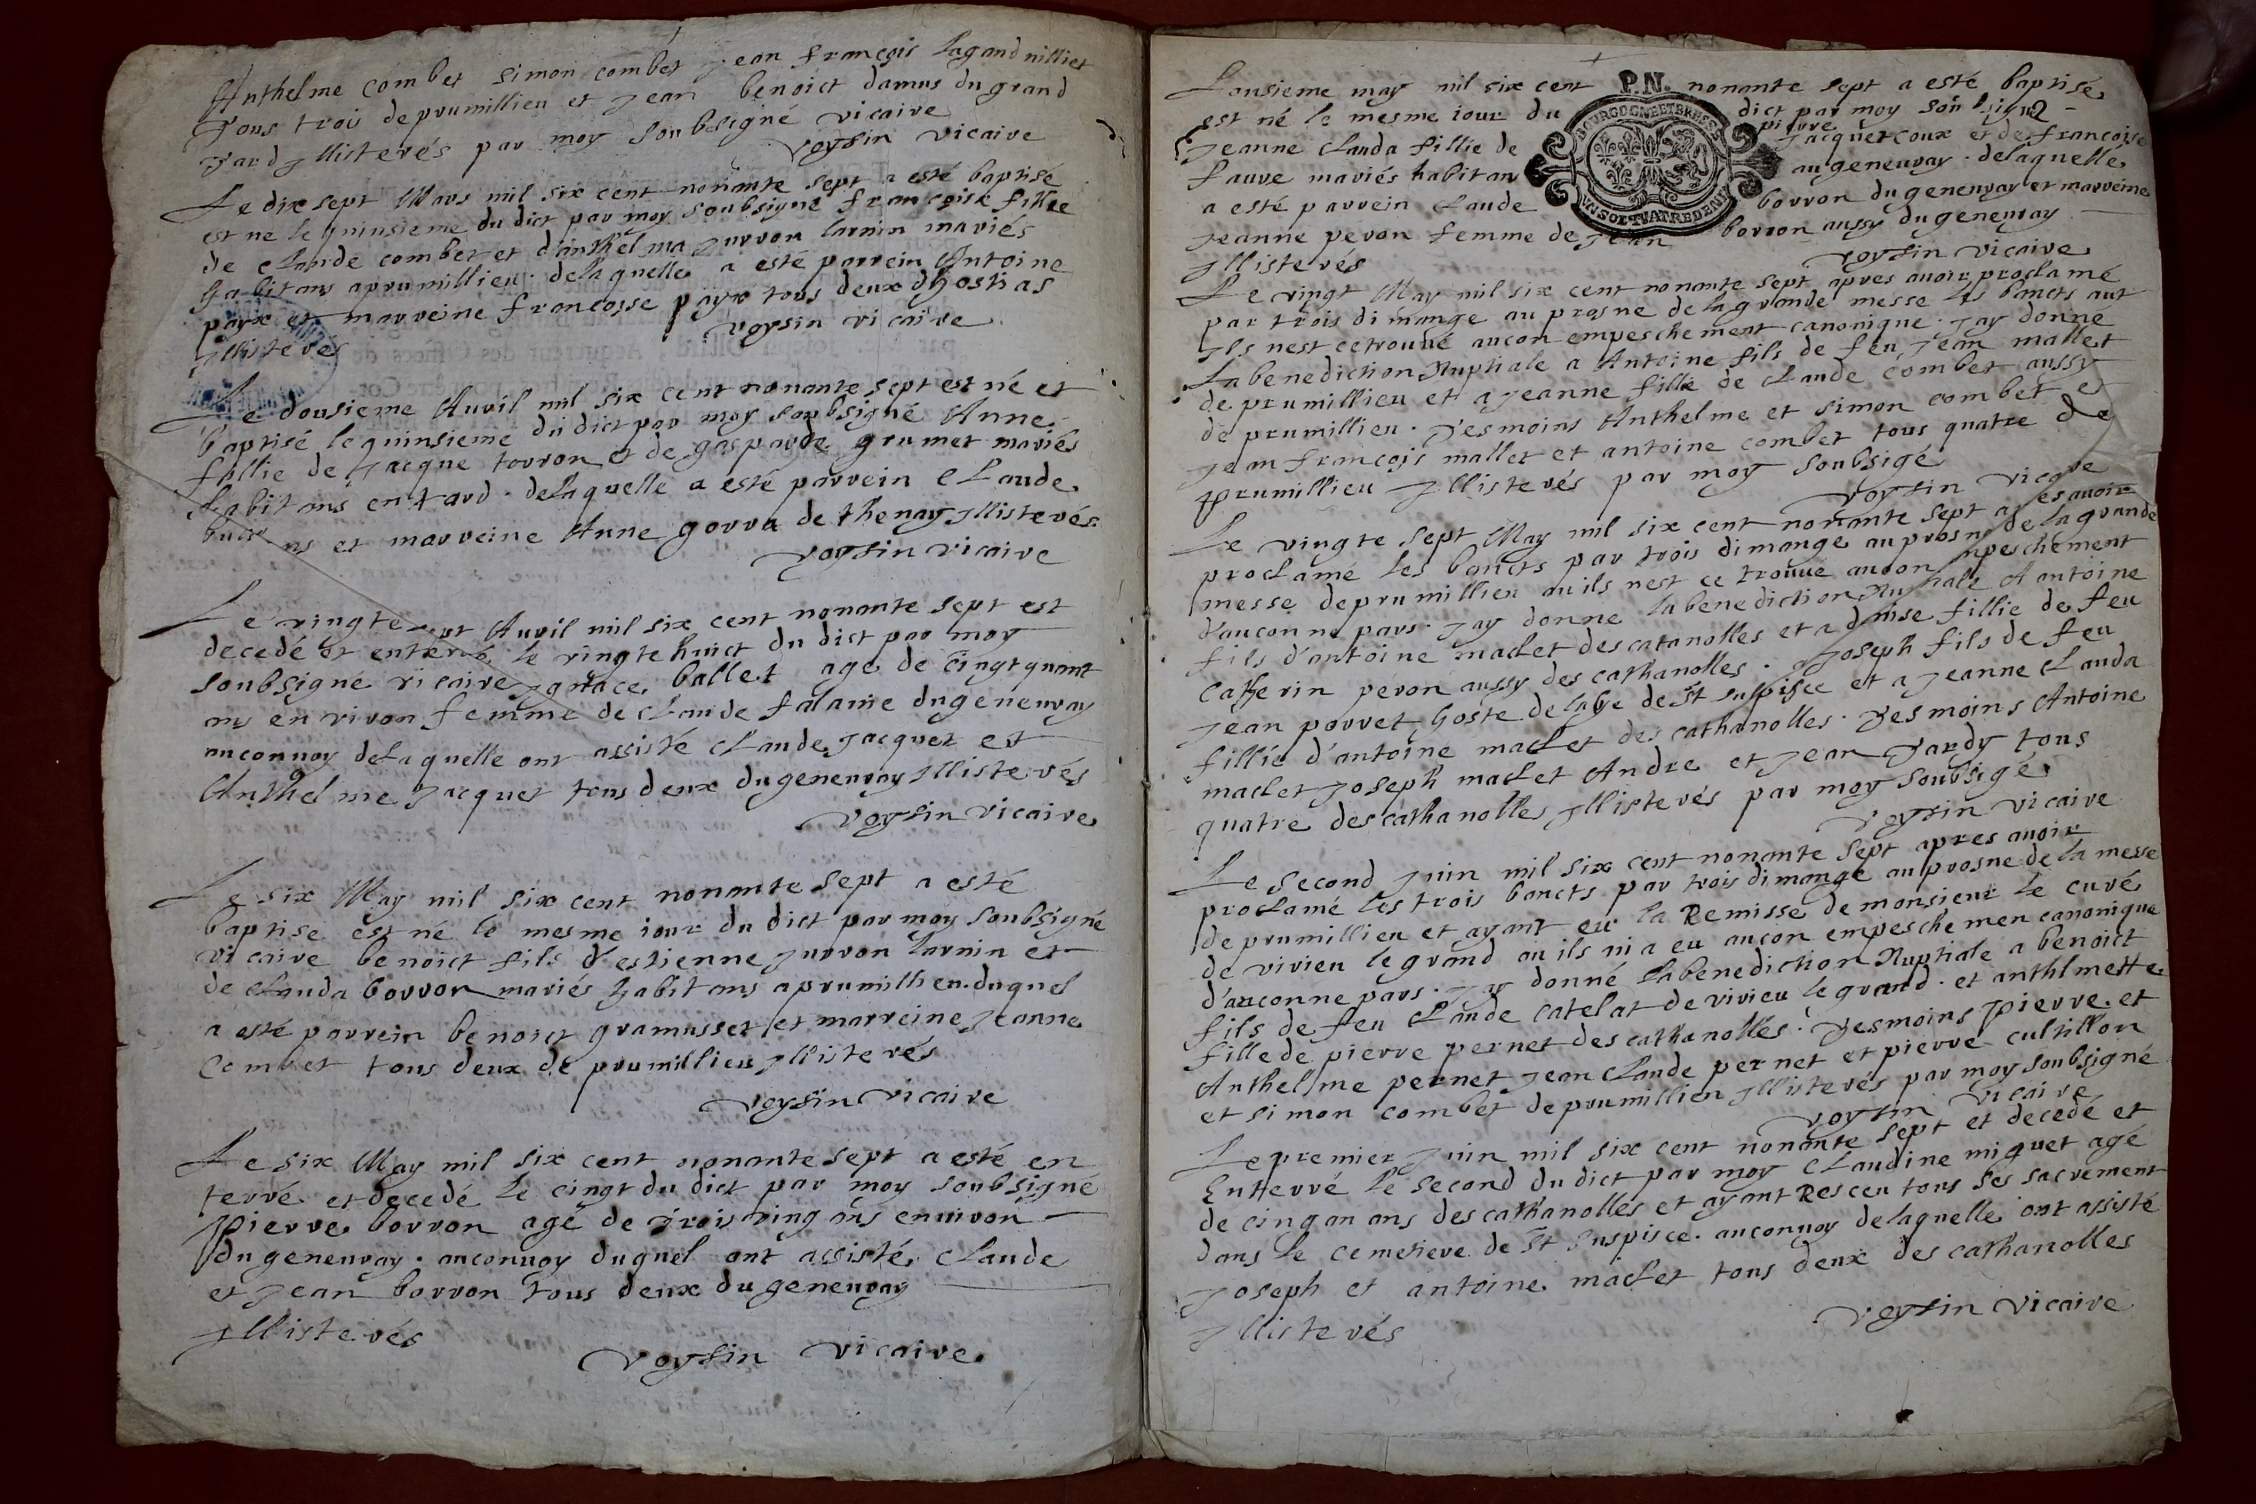 Anthelme combet simon combet Jean françois
Tous trois de prumillieu et Jean benoict damus du grand
Tard Jllisterés par moy soubsigné vicaire
voysin vicaire
Le dix sept Mars mil six cent nonante sept a esté baptisé
est ne le quinsieme du dict par moy soubsigné françoise fillie
de claude combet et d'anthelma Jurron larnin mariés
habitans a prumillieu. de laquelle a esté parrein Antoine
payx et marreine francoise payx tous deux dhostias
Jllisterés
voysin vicaire
Le dousieme Auril mil six cent nonante sept est né et
baptisé le quinsieme du dict par moy soubsigné Anne
fillie de Jacque torron et de gasparde grumet mariés
habitans en tard. de laquelle a esté parrein claude
et marreine Anne gorra de thenay Jllisterés
voysin vicaire
Le vingte Auril mil six cent nonante sept est
decedé et enterré le vingte huict du dict par moy
soubsigné vicaire Jgnace ballet age de cingt quant
ans en viron femme de claude falaine du geneuray
au conuoy de laquelle ont assisté claude Jacquet et
Anthelme Jacquet tous deux du geneuray Jllisterés
voysin vicaire
Le six May mil six cent nonante sept a esté
baptise est né le mesme iour du dict par moy soubsigné
vicaire benoict fils d'estienne Jurron larnin et
de clauda borron mariés habitans a prumillieu. duquel
a esté parrein benoict gramusset et marreine Jeanne
Combet tous deux de prumillieu Jllisterés
voysin vicaire
Le six May mil six cent nonante sept a esté en
terré et decedé le cingt du dict par moy soubsigné
Pierre borron agé de trois ving ans enuiron
du geneuray. au conuoy duquel ont assisté claude
et Jean borron tous deux du geneuray
Jllisterés
voysin vicaire
P.N.
BOURGOGNE ET BRESSE
VN SOL TVATRE DENIE
L'onsieme may mil six cent nonante sept a esté baptisé
est né le mesme iour du dict par moy soubsigné
pierre
Jeanne clauda fillie de Jacquet coux et de francoise
faure mariés habitans au geneuray. de laquelle
a esté parrein claude borron du geneuray et marreine
Jeanne peron femme de Jean borron aussy du geneuray
Jllisterés
voysin vicaire
Le vingt May mil six cent nonante sept apres auoir proclamé
par trois dimange au prosne de la grande messe les bancts aut
Jls nest ce trouué aucon empeschement canonique. Jay donne
La benediction Nuptiale a Antoine fils de feu Jean mallet
de prumillieu et a Jeanne fillie de claude combet aussy
de prumillieu. Tesmoins Anthelme et simon combet et
Jean françois mallet et antoine combet tous quatre de
prumillieu Jllisterés par moy soubsigé
voysin vicare
Le vingte sept May mil six cent nonante sept a es auoir
proclamé les bancts par trois dimange au prosne de la grande
messe de prumillieu au ils nest ce trouué aucon mpeschement
d'auconne pars. Jay donne la benediction Nuptiale A antoine
fils d'antoine maclet des catanolles et a denise fillie de feu
Catherin peron aussy des cathanolles. Joseph fils de feu
Jean porret hoste de labye de St sulpisce et a Jeanne clauda
fillie d'antoine maclet des cathanolles. Tesmoins Antoine
maclet Joseph maclet Andre et Jean Tardy tous
quatre des cathanolles Jllisterés par moy soubsigé
voysin vicaire
Le second Juin mil six cent nonante sept apres auoir
proclamé les trois bancts par trois dimange au prosne de la messe
de prumillieu et ayant eu la Remisse de monsieur le curé
de virieu le grand au ils ni a eu aucon empeschemen canonique
d'auconne pars. Jay donné la benediction Nuptiale a benoict
fils de feu claude catelat de virieu le grand. et anthlmette
fille de pierre pernet des cathanolles. Tesmoins pierre et
Anthelme pernet Jean claude pernet et pierre cultillon
et simon combet de prumillieu Jllisterés par moy soubsigné
voysin vicaire
Le premier Juin mil six cent nonante sept et decedé et
Enterré le second du dict par moy claudine miguet agé
de cinqan ans des cathanolles et ayant Resceu tous ses sacrement
dans le cemetiere de St suspisce. au conuoy de laquelle ont assisté
Joseph et antoine maclet tous deux des cathanolles
Jllisterés
voysin vicaire